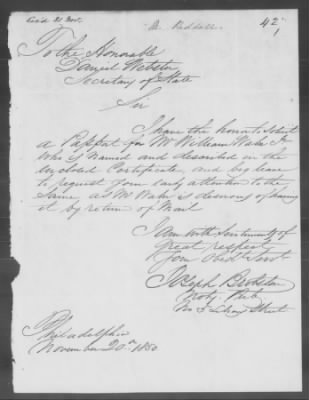 Recd 21 Nov.
42
1
To the Honorable
Daniel Webster
Secretary of State
Sir
I have the honor to solicit
a Passport for Mr William Hahn Jr
who is named and described in the
enclosed Certificate, and beg leave
to request your early attention to the
same, as Mr Hahn is desirous of having
it by return of Mail
I am with Sentiments of
Great respect
Your Obedt Servt
Joseph
Noty. Pub
No 5 Street
Philadelphia
November 20th 1850